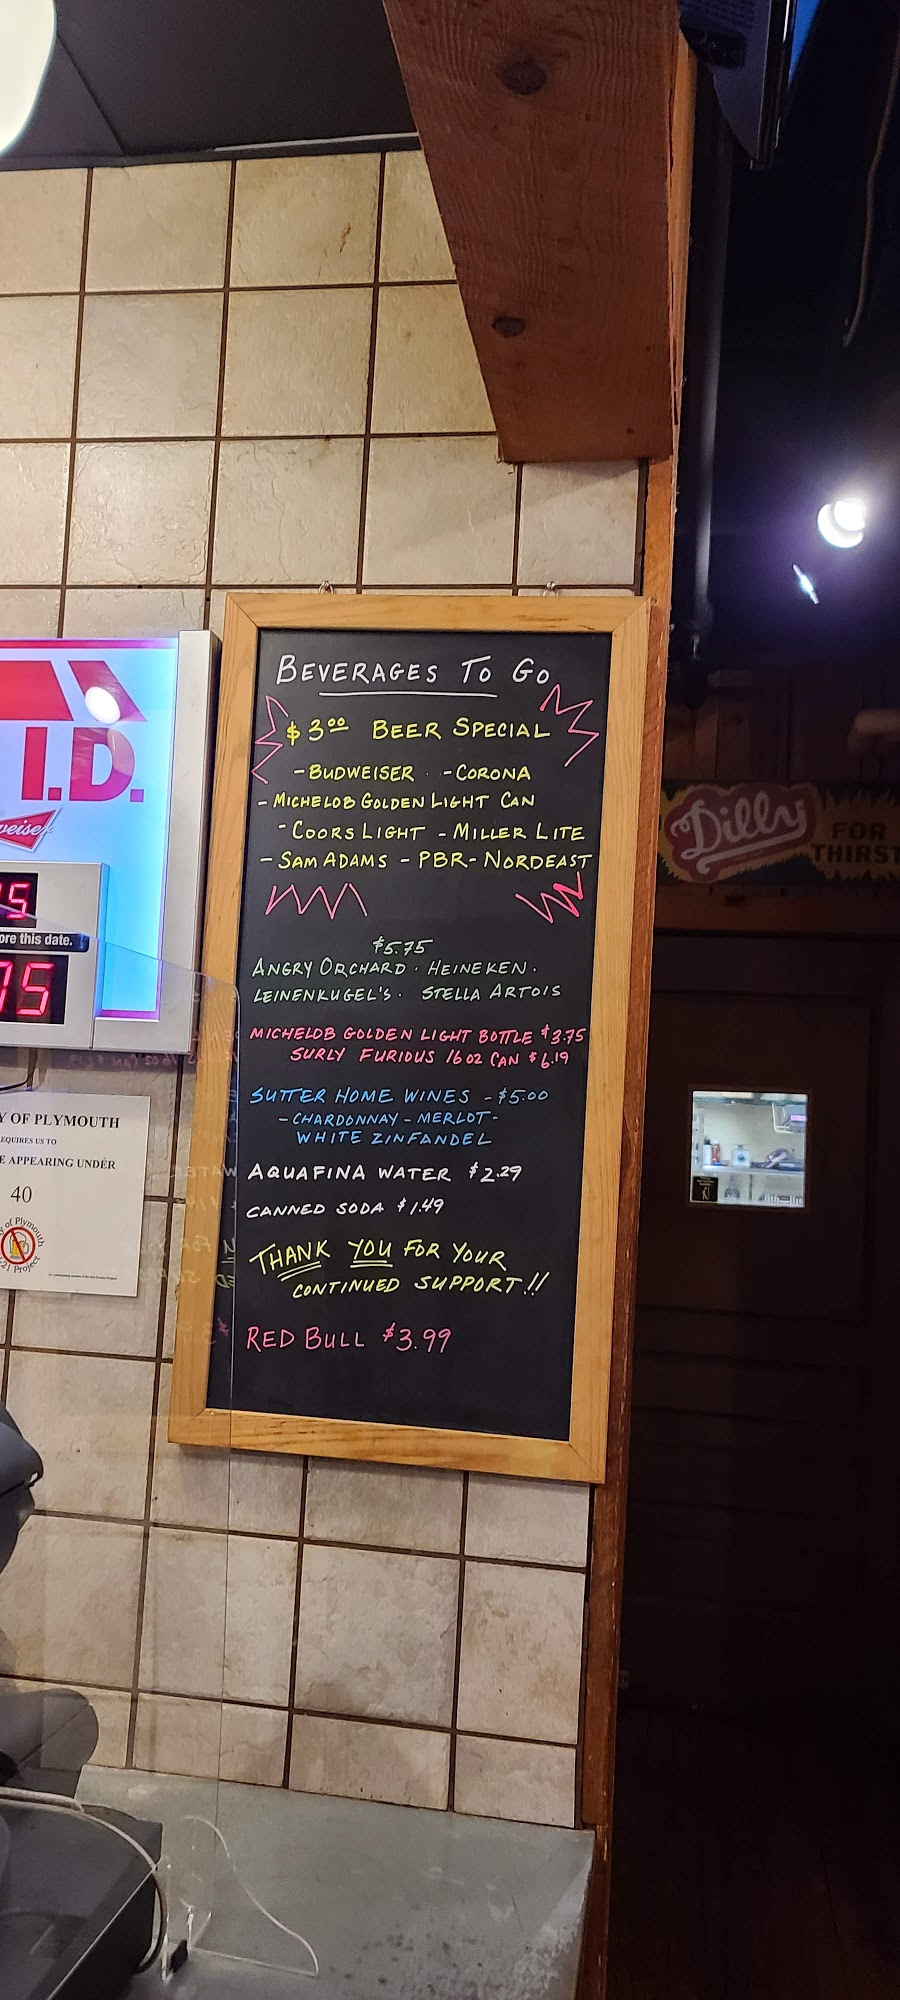 BEVERAGES TO GO
$3.00 BEER SPECIAL
-BUDWEISER -CORONA
-MICHELOB GOLDEN LIGHT CAN
-COORS LIGHT -MILLER LITE
-SAM ADAMS -PBR-NORDEAST
$5.75
ANGRY ORCHARD · HEINEKEN ·
LEINENKUGEL'S · STELLA ARTOIS
MICHELOB GOLDEN LIGHT BOTTLE $3.75
SURLY FURIOUS 16 OZ CAN $6.19
SUTTER HOME WINES -$5.00
-CHARDONNAY-MERLOT-
WHITE ZINFANDEL
AQUAFINA WATER $2.29
CANNED SODA $1.49
THANK YOU FOR YOUR
CONTINUED SUPPORT!!
RED BULL $3.99
I.D.
weiser
ore this date.
75
Y OF PLYMOUTH
EQUIRES US TO
E APPEARING UNDER
40
y of Plymouth
21 Project
Dilly
FOR
THIRST